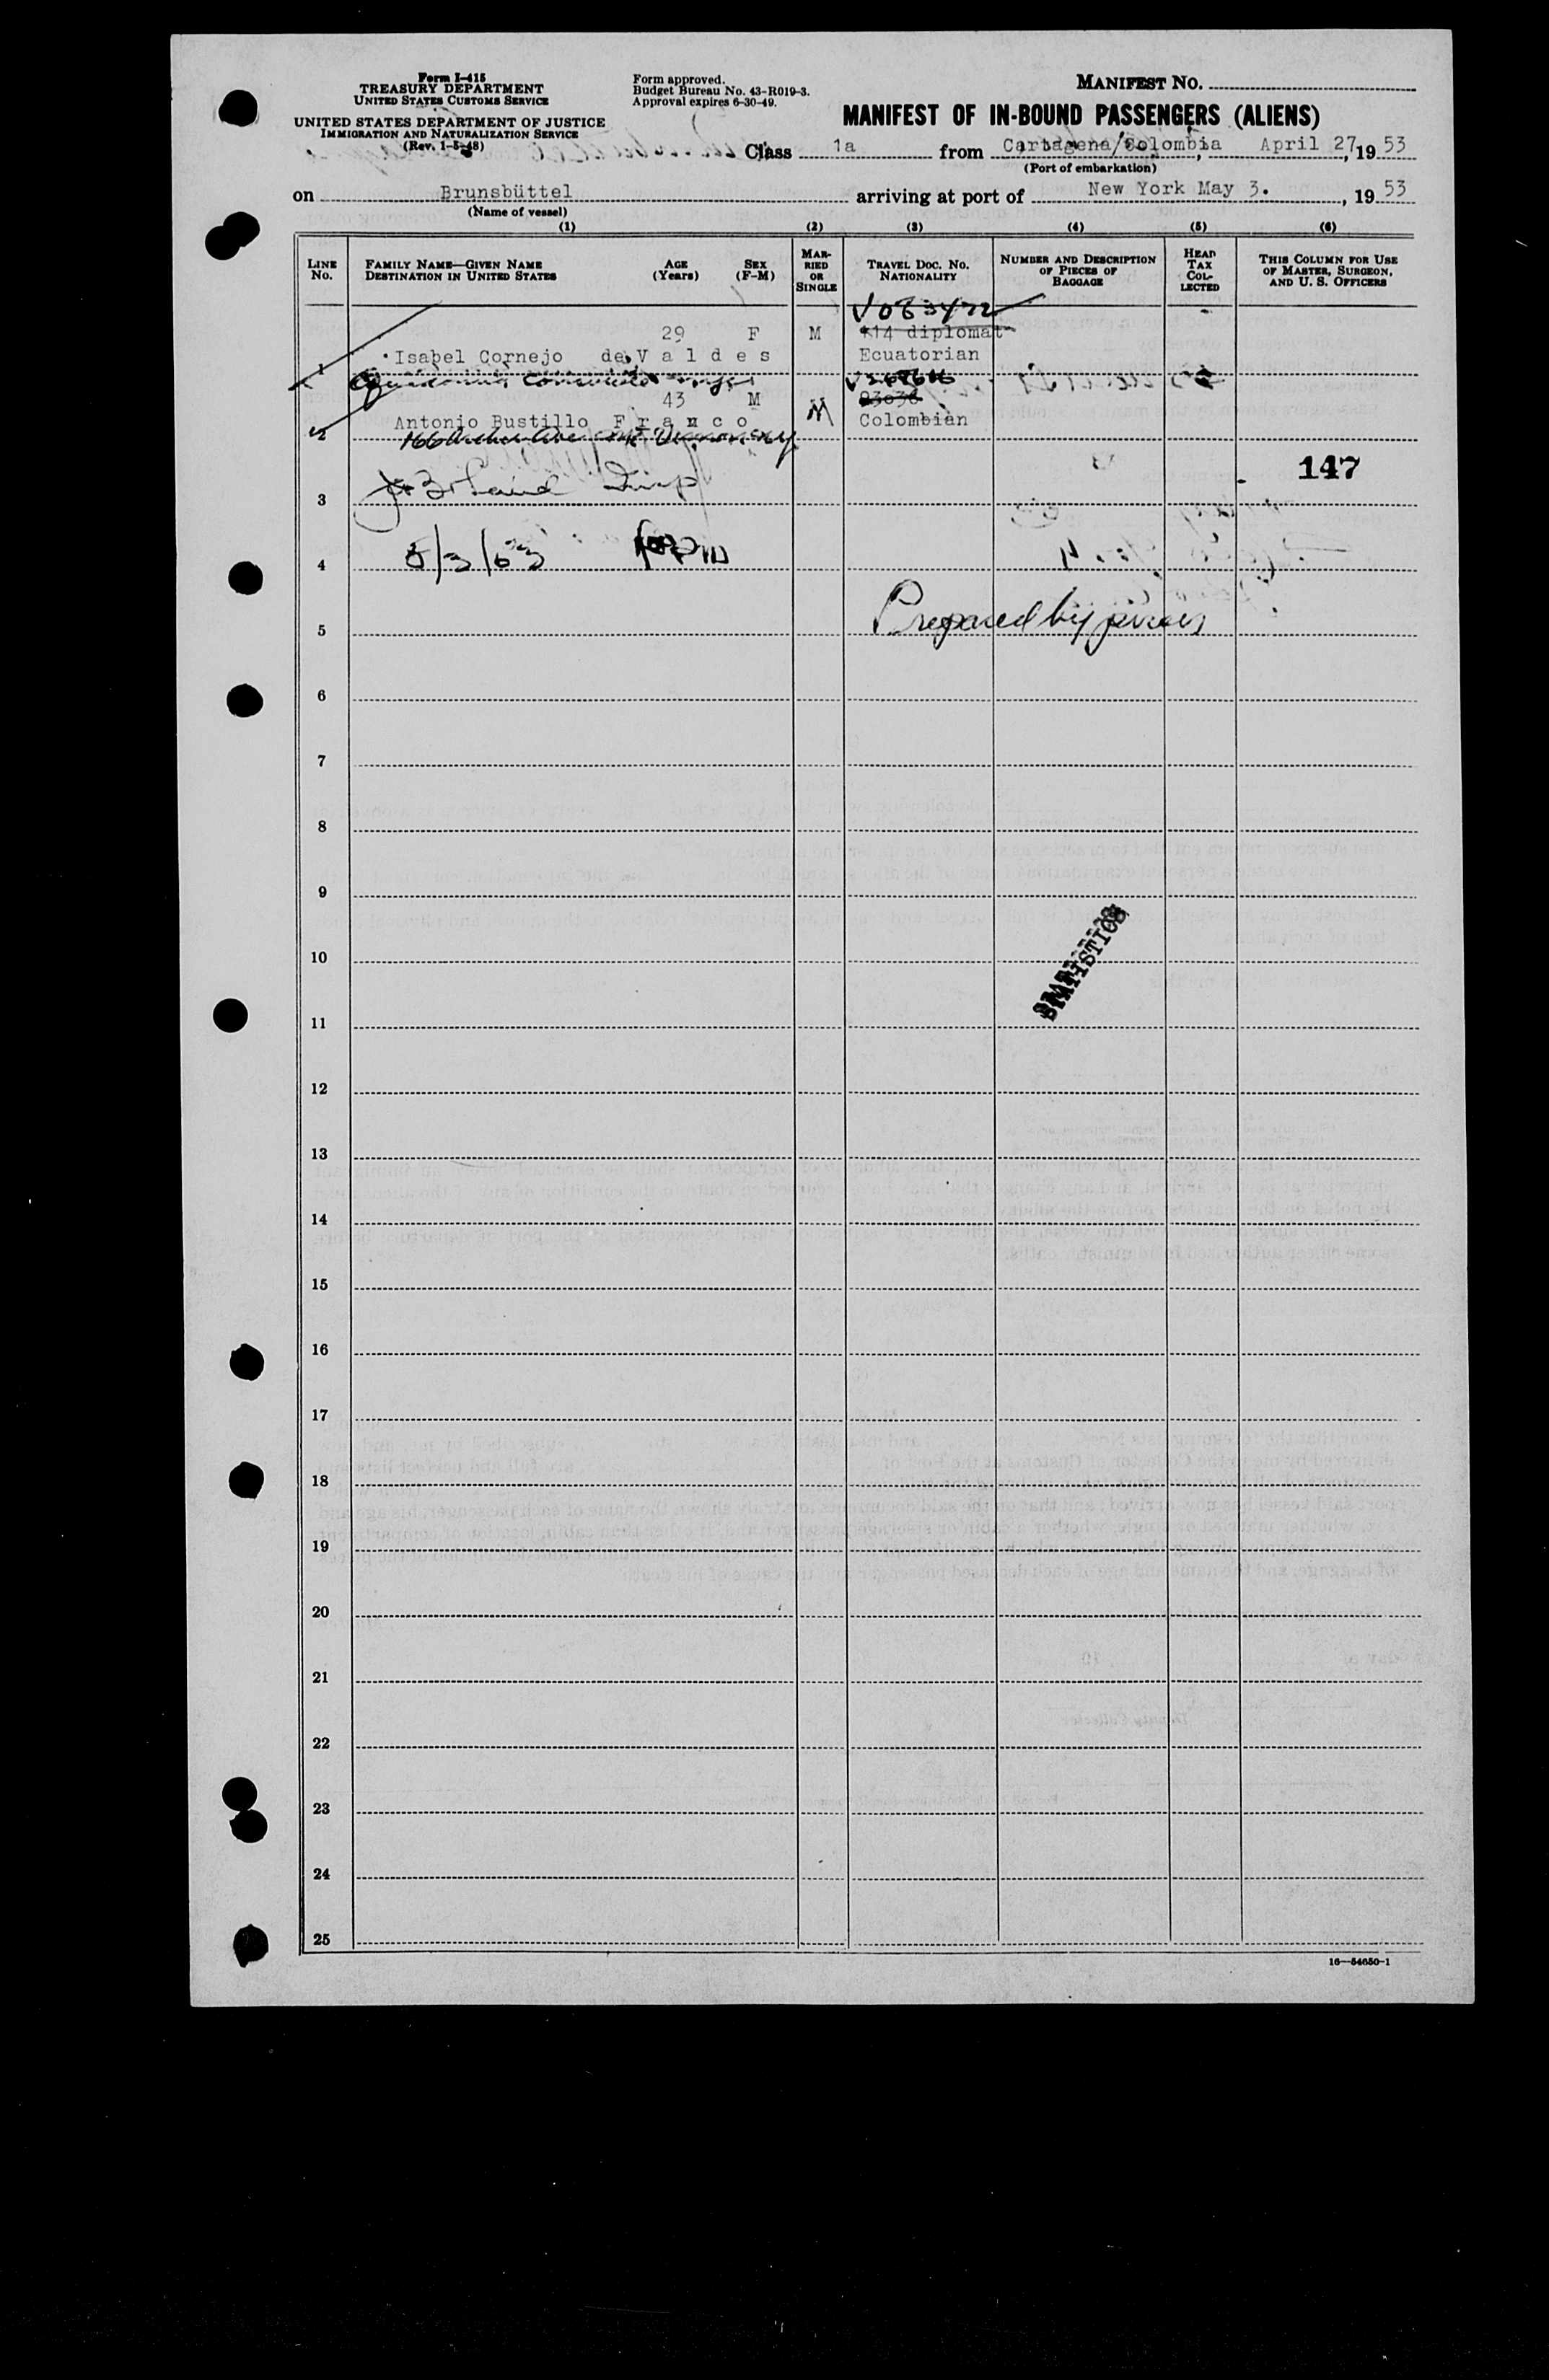 Form I-415
TREASURY DEPARTMENT
UNITED STATES CUSTOMS SERVICE
UNITED STATES DEPARTMENT OF JUSTICE
IMMIGRATION AND NATURALIZATION SERVICE
(Rev. 1-5-48)
Form approved.
Budget Bureau No. 43-R019-3.
Approval expires 6-30-49.
MANIFEST NO.
MANIFEST OF IN-BOUND PASSENGERS (ALIENS)
Class 1a from Cartagena/Colombia, April 27, 19 53
(Port of embarkation)
on Brunsbüttel arriving at port of New York May 3., 19 53
(Name of vessel)
(1) (2) (3) (4) (5) (6)
LINE NO.
FAMILY NAME—GIVEN NAME
DESTINATION IN UNITED STATES
AGE (Years)
SEX (F-M)
MARRIED OR SINGLE
TRAVEL DOC. NO.
NATIONALITY
NUMBER AND DESCRIPTION OF PIECES OF BAGGAGE
HEAD TAX COLLECTED
THIS COLUMN FOR USE OF MASTER, SURGEON, AND U. S. OFFICERS
29 F M *14 diplomat
1 Isabel Cornejo de V a l d e s Ecuatorian
43 M M
2 Antonio Bustillo F r a n c o Colombian
147
3
4
Prepared by
5
6
7
8
9
10
11
12
13
14
15
16
17
18
19
20
21
22
23
24
25
16—54650-1